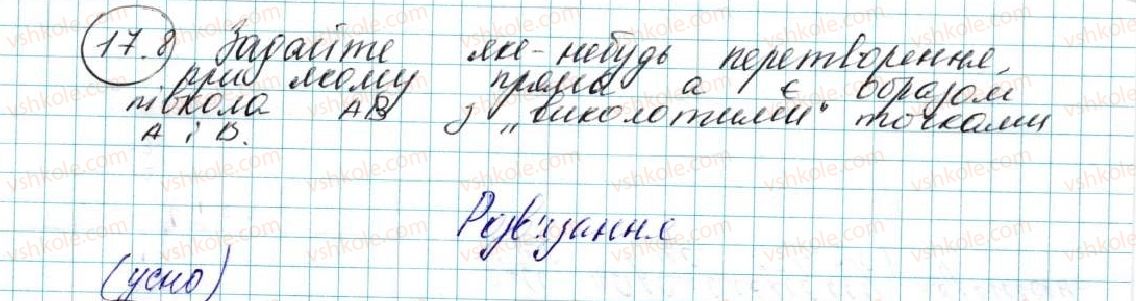 17.8) Задайте яке-небудь перетворення,
при якому пряма a є образом
півкола AB з "виколотими" точками
A і B.
Розв'язання
(усно)